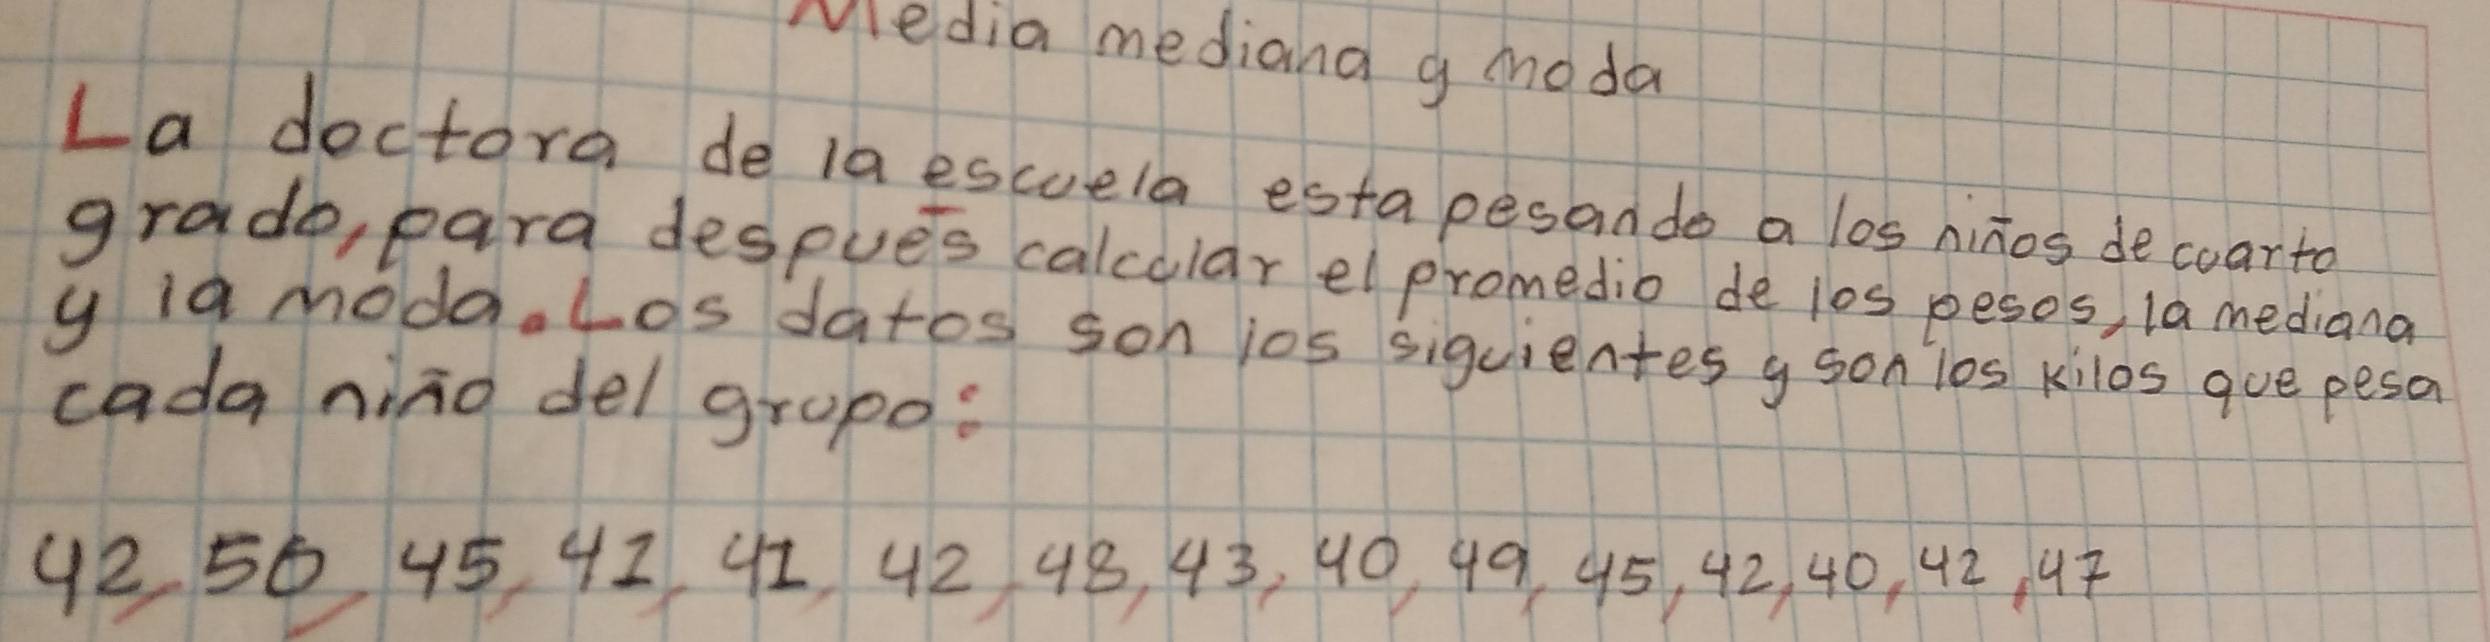 Media mediana y moda
La doctora de la escuela esta pesando a los niños de cuarto
grado, para después calcular el promedio de los pesos, la mediana
y la moda. Los datos son los siguientes y son los kilos que pesa
cada niño del grupo:
42, 50, 45, 41, 41, 42, 48, 43, 40, 49, 45, 42, 40, 42, 47